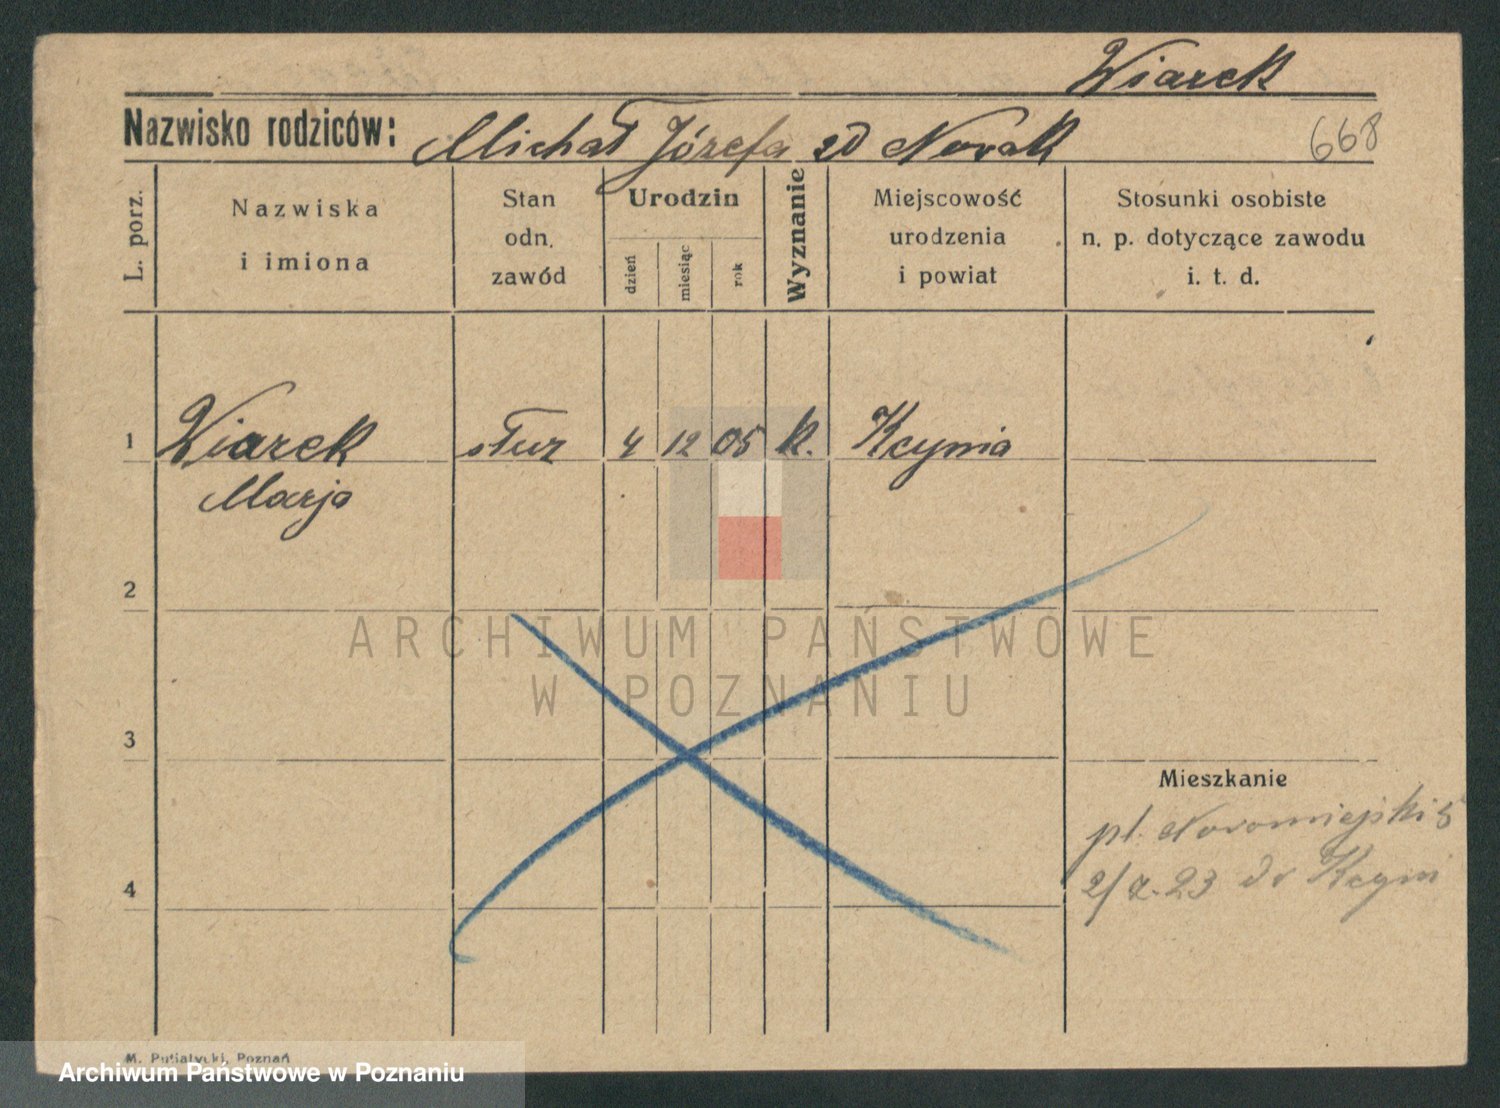 Wiarek
Nazwisko rodziców: Michał Józefa zd Nowak 668
L. porz.
Nazwiska
i imiona
Stan
odn.
zawód
Urodzin
dzień
miesiąc
rok
Wyznanie
Miejscowość
urodzenia
i powiat
Stosunki osobiste
n. p. dotyczące zawodu
i. t. d.
1 Wiarek służ 4 12 05 k. Kcynia
Marja
2
ARCHIWUM PAŃSTWOWE
W POZNANIU
3
Mieszkanie
pl. Nowomiejski 5
4
23 do Kcyni
M. Putiatycki, Poznań
Archiwum Państwowe w Poznaniu